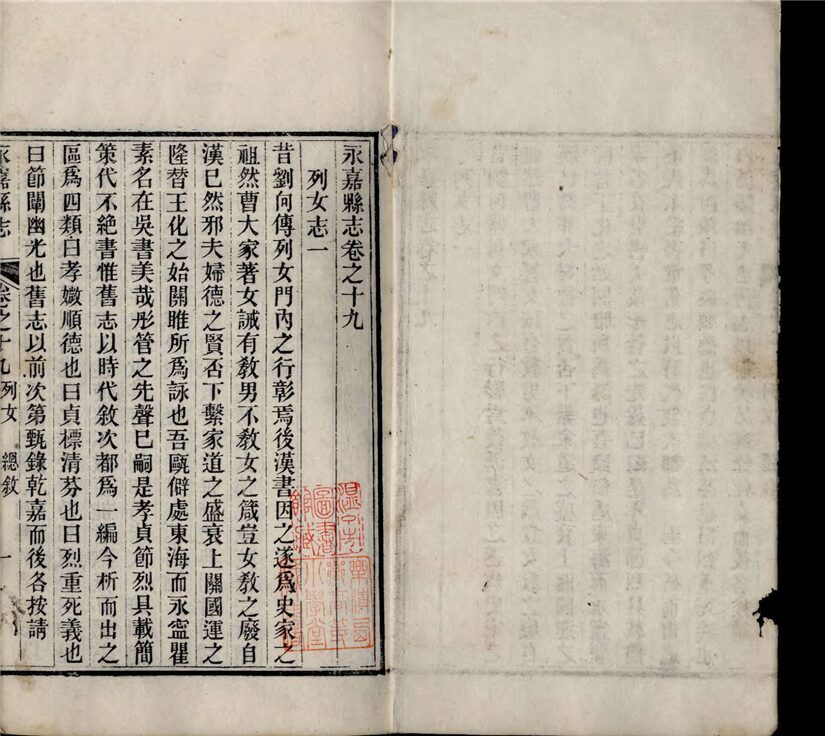 永嘉縣志卷之十九
列女志一
昔劉向傳列女門內之行彰焉後漢書因之遂爲史家之
祖然曹大家著女誡有教男不教女之箴豈女教之廢自
漢已然邪夫婦德之賢否下繫家道之盛衰上關國運之
隆替王化之始關雎所爲詠也吾甌僻處東海而永寍瞿
素名在吳書美哉彤管之先聲已嗣是孝貞節烈具載簡
策代不絕書惟舊志以時代敘次都爲一編今析而出之
區爲四類曰孝媺順德也曰貞標清芬也曰烈重死義也
曰節闡幽光也舊志以前次第甄錄乾嘉而後各按請
永嘉縣志 卷之十九列女 總敘 一
溫州
圖書
館藏